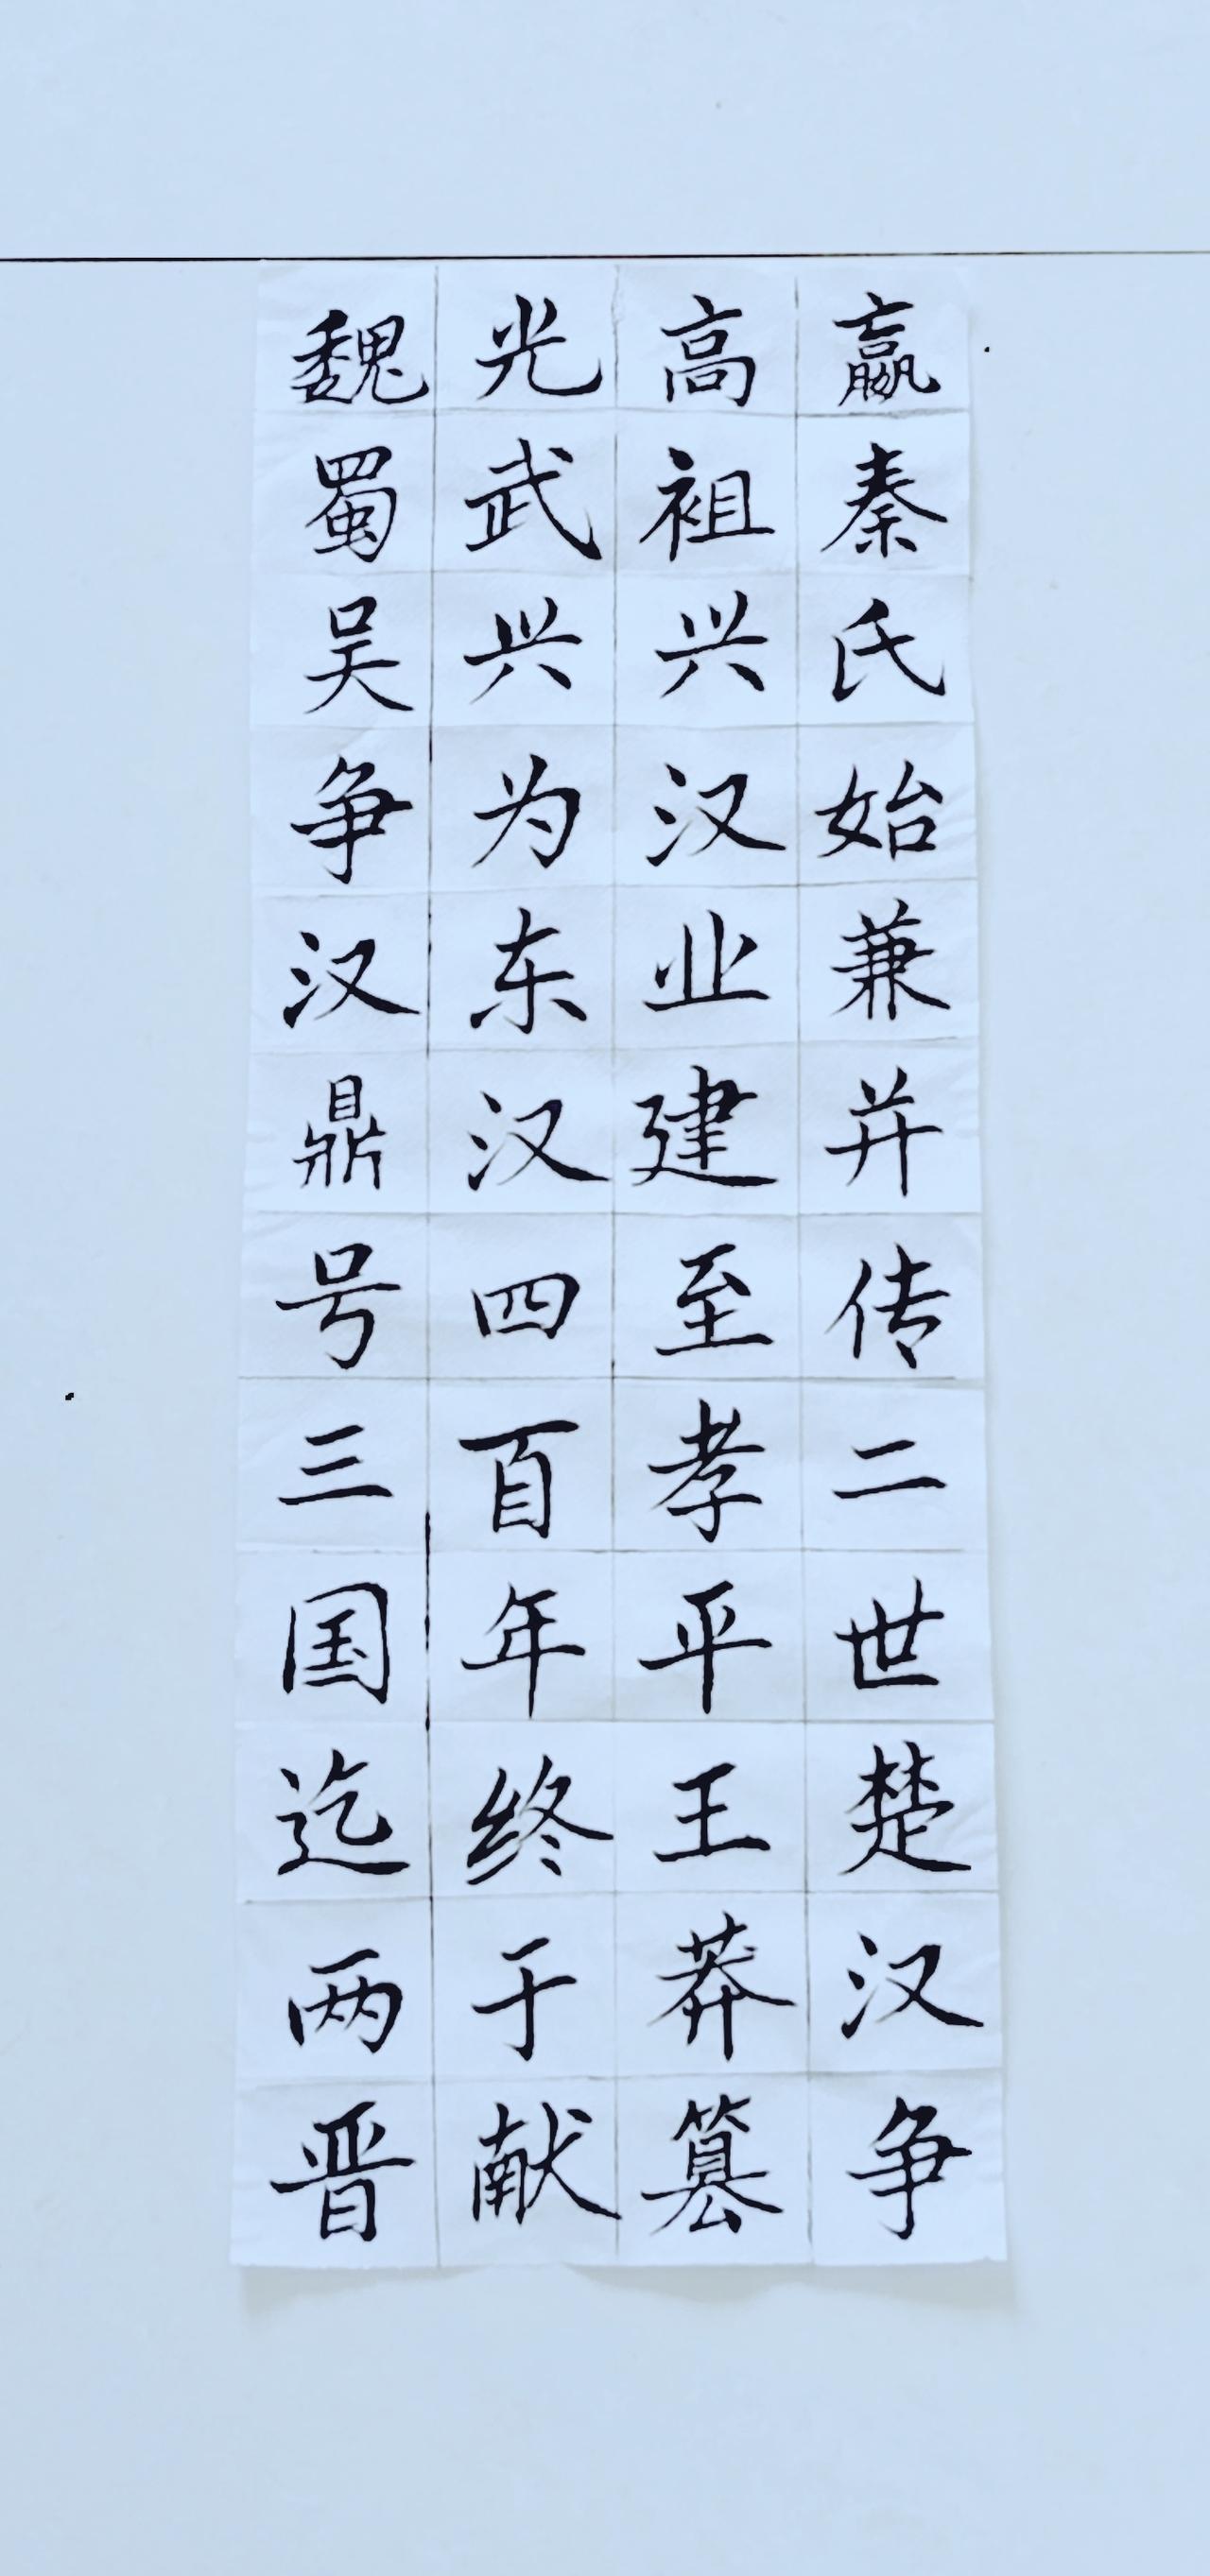 嬴秦氏始兼并传二世楚汉争
高祖兴汉业建至孝平王莽篡
光武兴为东汉四百年终于献
魏蜀吴争汉鼎号三国迄两晋